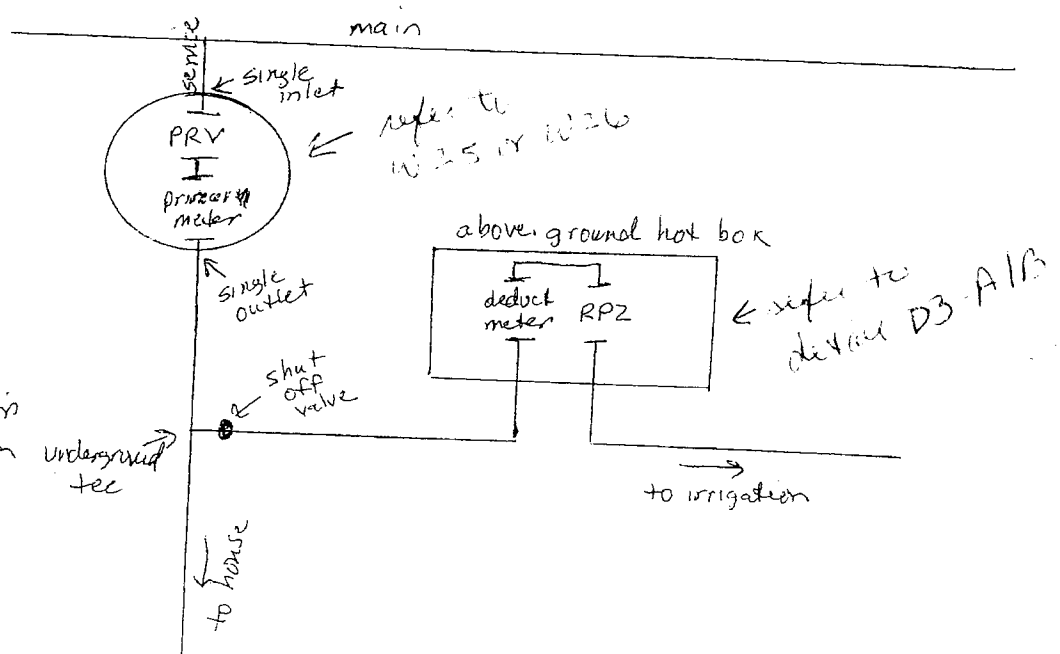 main
service
single
inlet
PRV
primary
meter
refer to
W25 or W26
single
outlet
above ground hot box
deduct
meter
RPZ
refer to
D3-A/B
shut
off
valve
underground
tee
to irrigation
to house